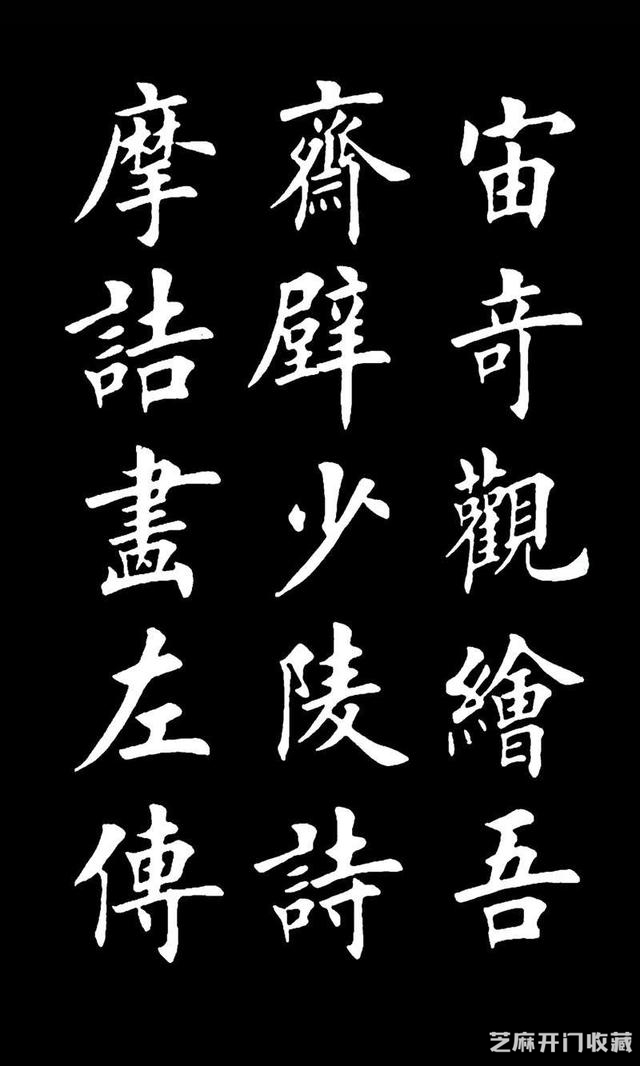 宙奇觀繪吾
齋壁少陵詩
摩詰畫左傳
芝麻开门收藏